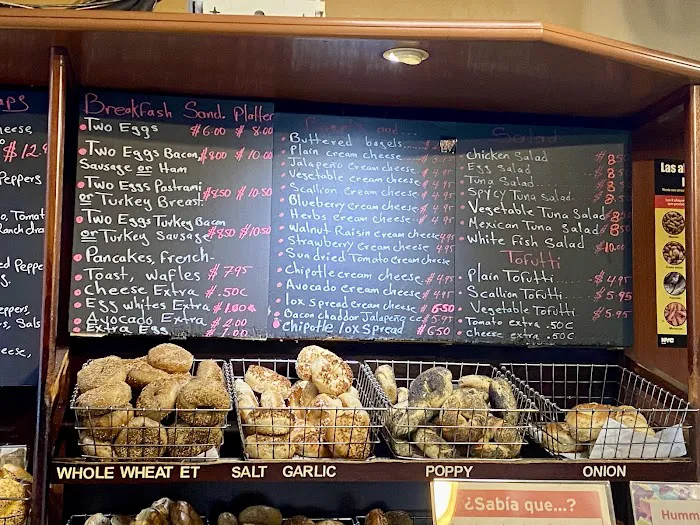 aps
cheese
$12.
Peppers
Tomat
Ranch dra
Breakfash Sand. Platter
Two Eggs $6.00 $8.00
Two Eggs Bacon, $8.00 $10.00
Sausage or Ham
Two Eggs Pastrami $8.50 $10.50
or Turkey Breast.
Two Eggs Turkey Bacon
or Turkey Sausage $8.50 $10.50
Pancakes, French-
Toast, wafles $7.95
Cheese Extra $.50¢
Egg whites Extra $1.00
Avocado Extra $2.00
Extra Egg
Buttered bagels
Plain cream cheese
Jalapeño cream cheese $4.95
Vegetable cream cheese $4.95
Scallion cream cheese $4.95
Blueberry cream cheese $4.95
Herbs cream cheese $4.95
Walnut Raisin cream cheese $4.95
Strawberry cream cheese 4.95
Sun dried Tomato cream cheese
Chipotle cream cheese $4.95
Avocado cream cheese $4.95
lox Spread cream cheese $6.50
Bacon chaddor Jalapeño cc $5.95
Chipotle lox Spread $6.50
Salad
chicken Salad
Egg Salad
Tuna Salad
Spicy Tuna salad
Vegetable Tuna Salad
Mexican Tuna Salad
White Fish Salad $10.00
Tofutti
Plain Tofutti $4.95
Scallion Tofutti $5.95
Vegetable Tofutti $5.95
Tomato extra .50¢
cheese extra .50¢
Las al
NYC
WHOLE WHEAT ET SALT GARLIC POPPY ONION
¿Sabía que...?
Humm